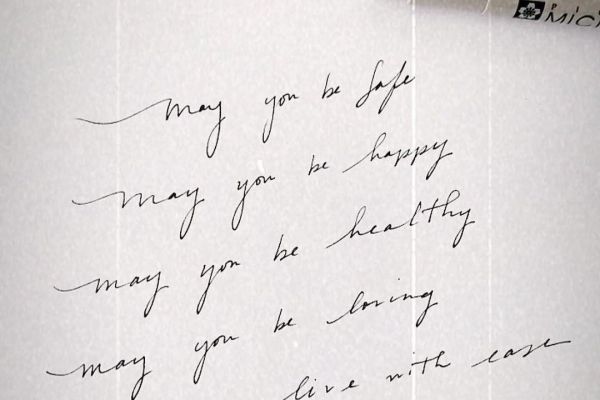 MICR
may you be safe
may you be happy
may you be healthy
may you be loving
live with ease